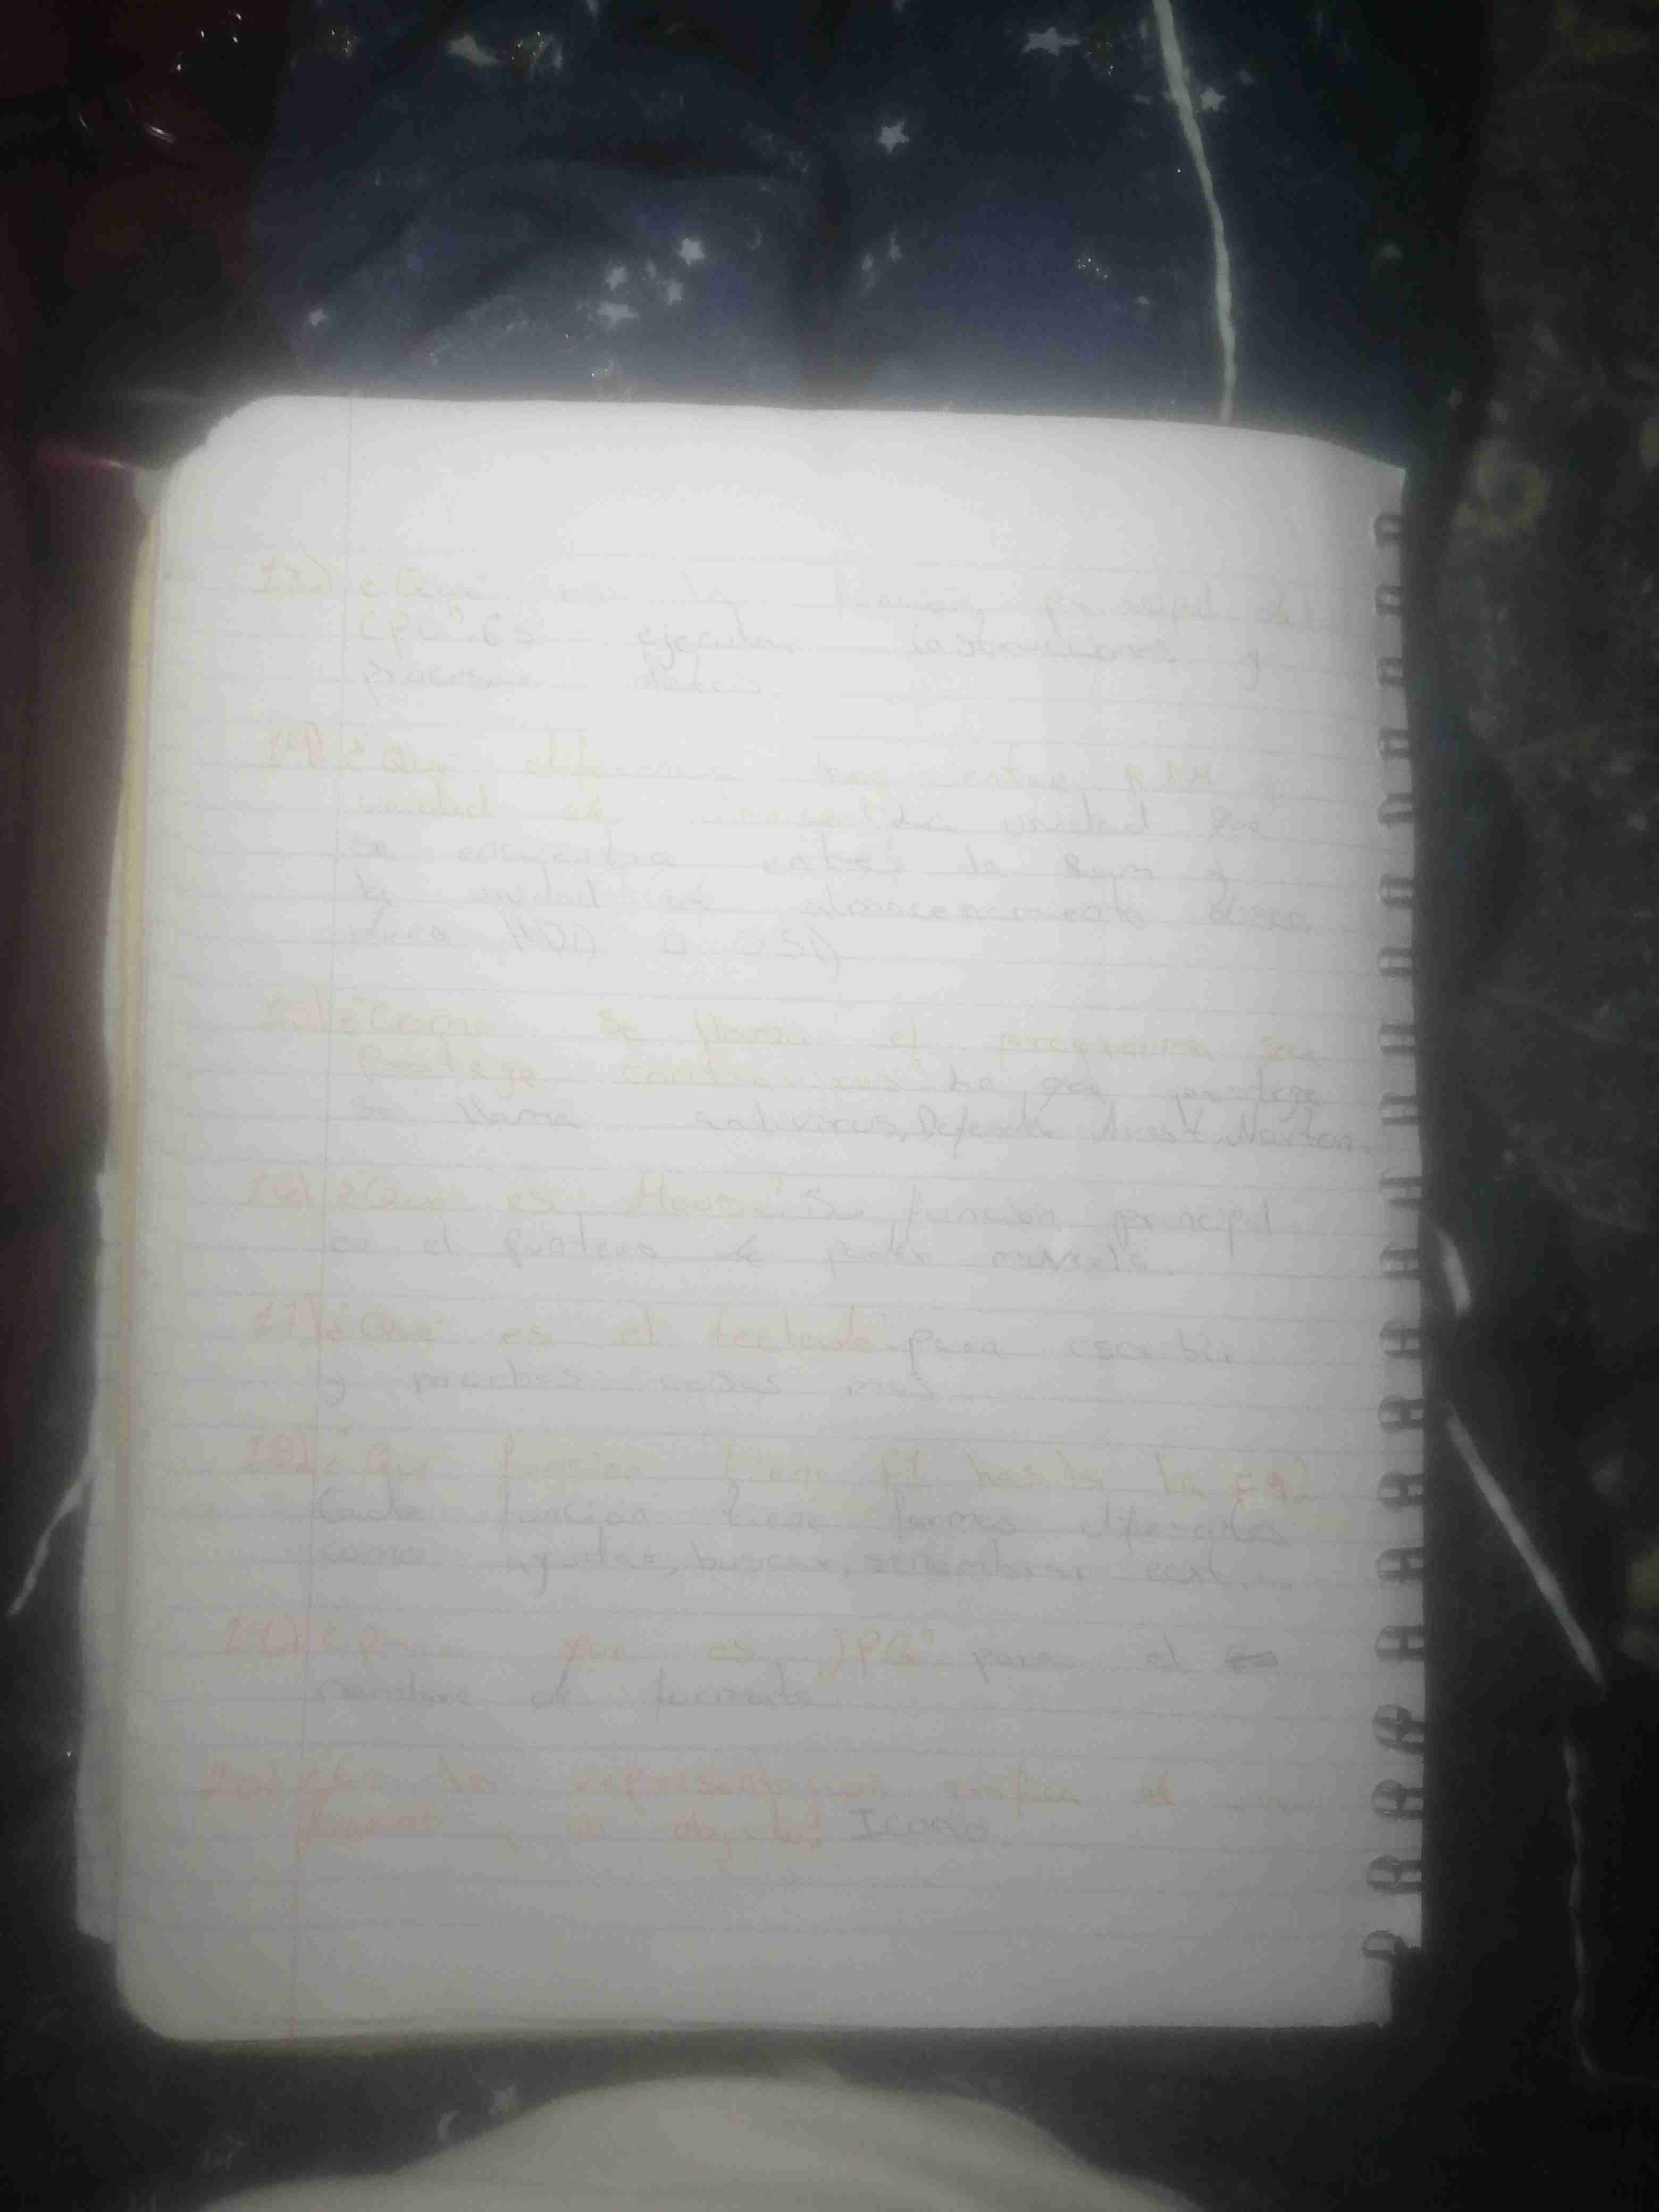 13.) ¿Qué es la función principal del
CPU? Es ejecutar instrucciones y
procesar datos.
14) ¿Que diferencia hay entre RAM y
unidad de La unidad
se encuentra entre la Ram y
la unidad de almacenamiento
HDD o SSD
15) ¿Como se llama el programa
protege contra virus? Lo que protege
se llama antivirus, Defender Avast, Norton.
16) ¿Que es Mouse? Su función principal
es el puntero de poder moverlo.
17) ¿Que es el teclado? para escribir
y muchas cosas mas.
18) ¿Que funsion tiene F1 hasta la
Cada funcion tiene formas diferentes
como ayudar, buscar,
19.) que es JPG? para el
nombre de formato
20.) ¿Es la representacion grafica de un
un objeto? Icono.